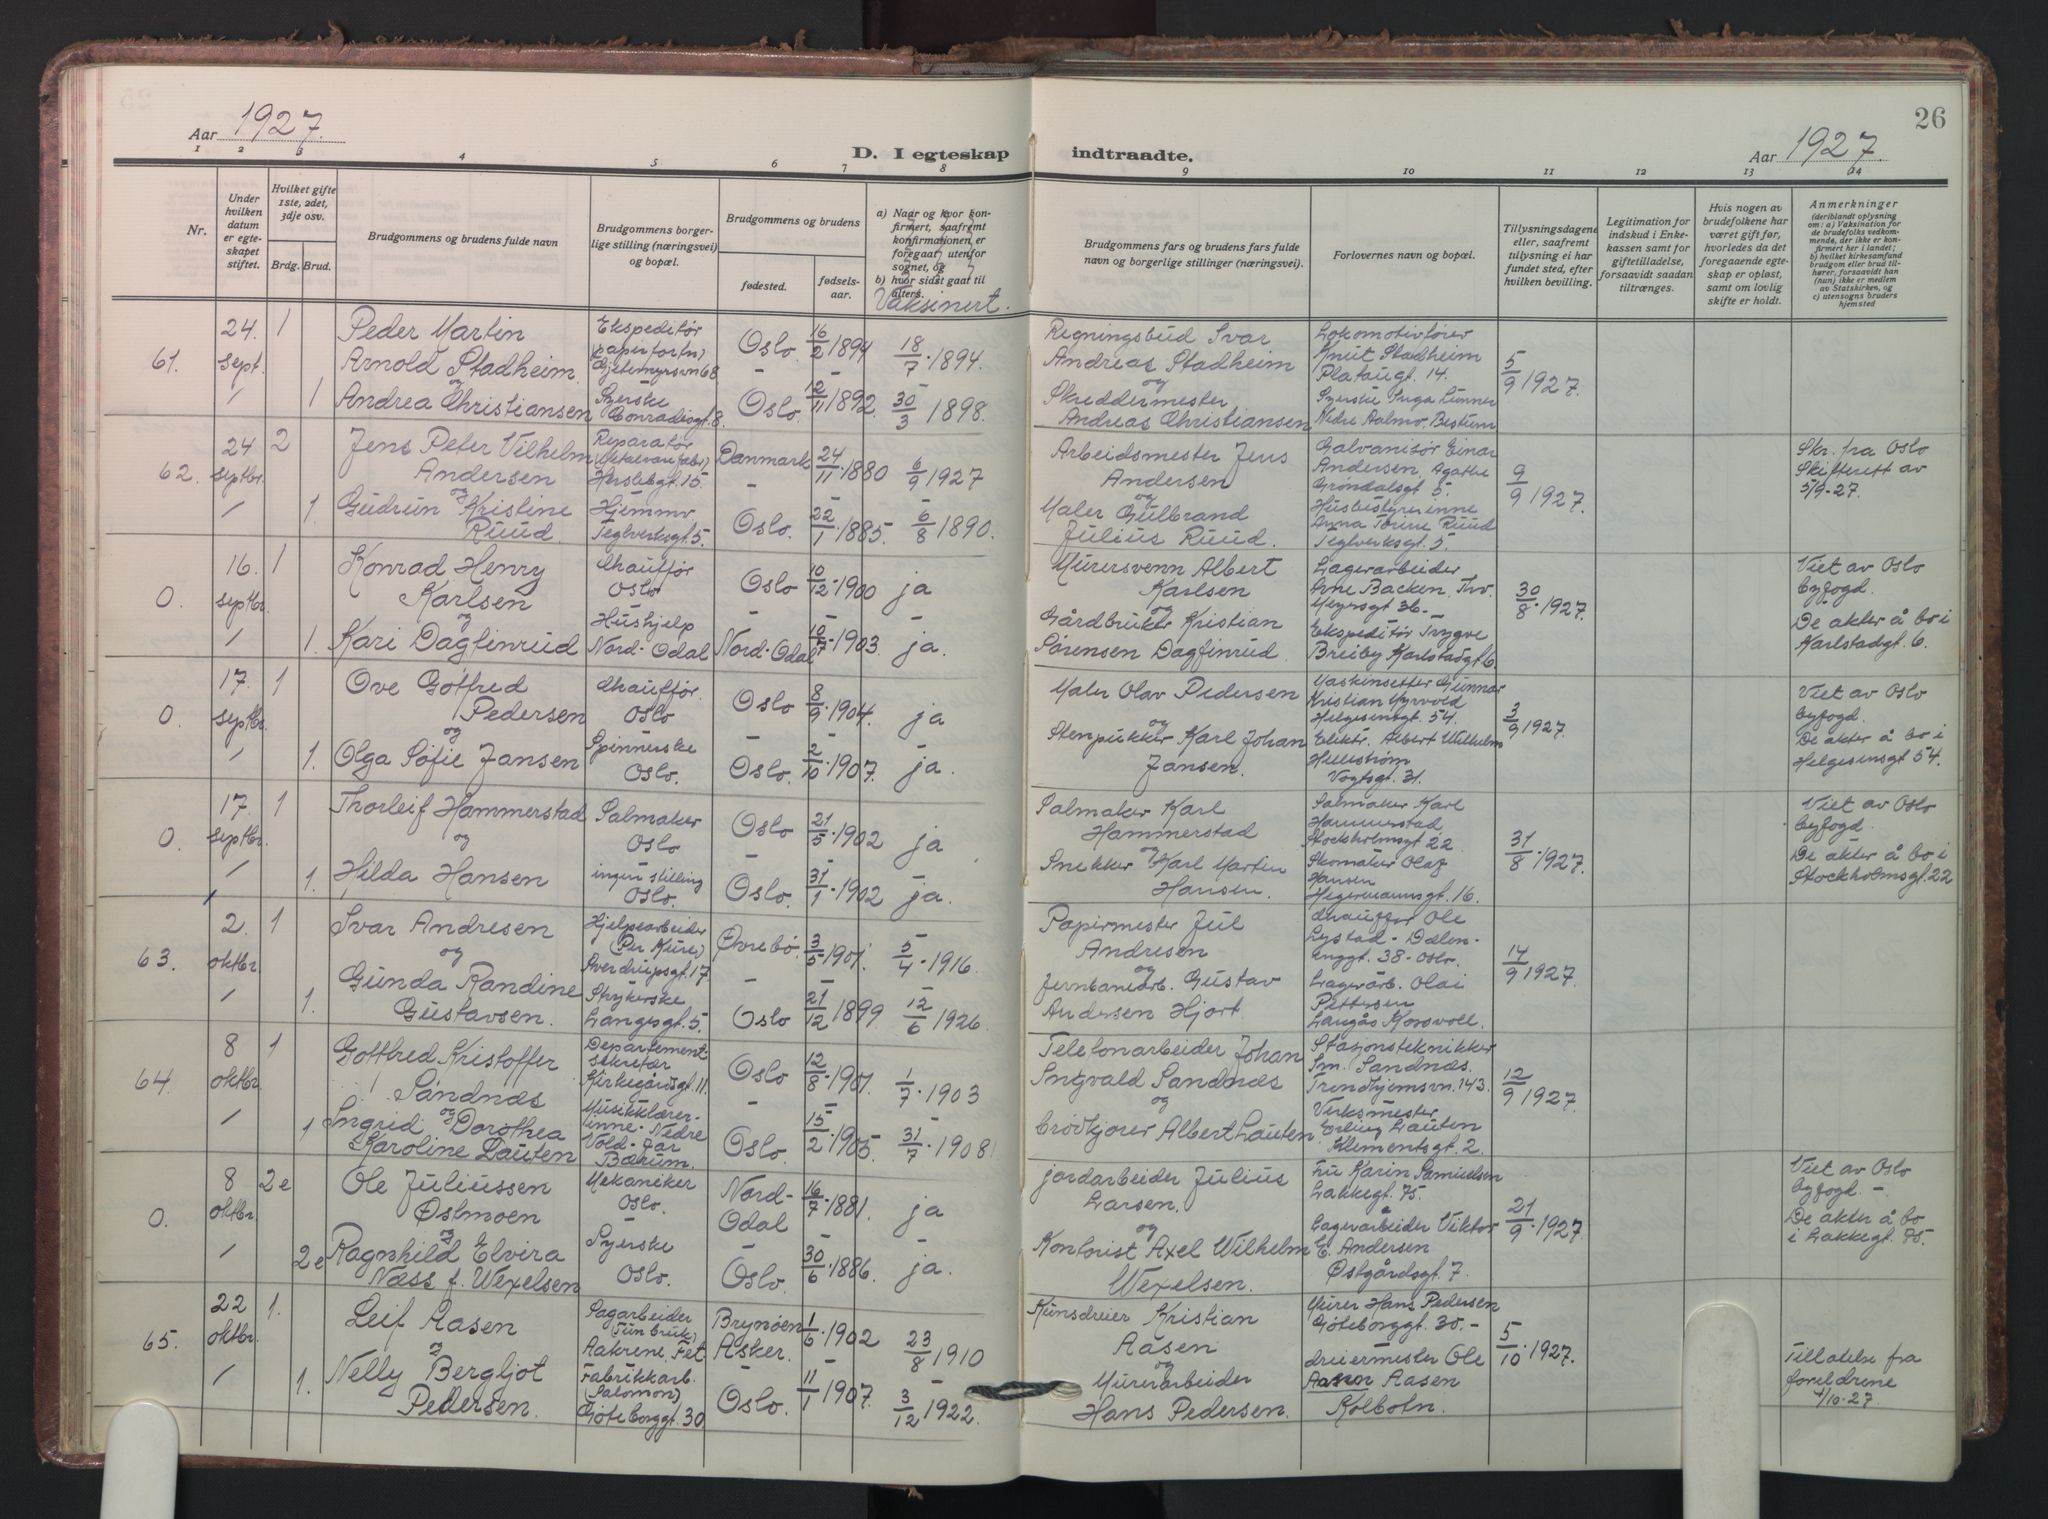 26
Aar 1927.
D. I egteskap indtraadte.
Aar 1927.
1 2 3 4 5 6 7 8 9 10 11 12 13 14
Nr.
Under hvilken datum er egteskapet stiftet.
Hvilket gifte 1ste, 2det, 3dje osv.
Brdg. Brud.
Brudgommens og brudens fulde navn
Brudgommens borgerlige stilling (næringsvei) og bopæl.
Brudgommens og brudens
fødested.
fødselsaar.
a) Naar og hvor konfirmert, saafremt konfirmationen er foregaat utenfor sognet, og
b) hvor sidst gaat til alters.
Vaksinert.
Brudgommens fars og brudens fars fulde navn og borgerlige stillinger (næringsvei).
Forlovernes navn og bopæl.
Tillysningsdagene eller, saafremt tillysning ei har fundet sted, efter hvilken bevilling.
Legitimation for indskud i Enkekassen samt for giftetilladelse, forsaavidt saadan tiltrænges.
Hvis nogen av brudefolkene har været gift før, hvorledes da det foregaaende egteskap er opløst, samt om lovlig skifte er holdt.
Anmerkninger
(deriblandt oplysning om: a) Vaksination for de brudefolks vedkommende, der ikke er konfirmert her i landet; b) hvilket kirkesamfund brudgom eller brud tilhører, forsaavidt han (hun) ikke er medlem av Statskirken, og c) utensogns bruders hjemsted
61.
24. Sept. 1
Peder Martin
Arnold Stadheim
og
Ekspeditør
(papirfortn)
Gjetemyrsvn 68
Oslo. 16/2 1894 18/7. 1894.
Regningsbud Ivar
Andreas Stadheim
og
Lokomotivfører
Knut Stadheim
Plataugt. 14.
5/9 1927.
1
Andrea Christiansen
Syerske
Conradisgt. 8.
Oslo. 12/11 1892. 30/3 1898.
Skreddermester
Andreas Christiansen
Syerske Inga Lunner
Nedre Aalmo. Bestum
62.
24 septbr. 2
Jens Peter Vilhelm
Andersen
og
Reparatør
(Metalvarefabr)
Herslebgt. 15
Danmark 24/11. 1880 6/9 1927
Arbeidsmester Jens
Andersen
og
Galvanisør Einar
Andersen, Agathe
Grøndalsgt 5.
9/9 1927.
Skr. fra Oslo
Skifterett av
5/9-27.
1.
Gudrun Kristine
Ruud.
Hjemmv
Teglverksgt. 5.
Oslo. 22/1 1885. 6/8 1890.
Maler Gulbrand
Julius Ruud.
Husbestyrerinne
Anna Tomine Ruud
Teglverksgt. 5.
0.
16. septbr. 1
Konrad Henry
Karlsen
og
Chauffør
Oslo
Oslo 10/12. 1900 ja
Murersvenn Albert
Karlsen
og
Lagerarbeider
Arne Backen, Thv.
Meyersgt 36.
30/8. 1927.
Viet av Oslo
byfogd.
De akter å bo i
Karlstadgt. 6.
1.
Kari Dagfinrud
Hushjelp
Nord-Odal
Nord-Odal 10/7. 1903. ja.
Gårdbruker Kristian
Sørensen Dagfinrud.
Ekspeditør Trygve
Breiby Karlstadgt 6.
0.
17. septbr. 1
Ove Gotfred
Pedersen
og
Chauffør.
Oslo
Oslo 8/9. 1904. ja
Maler Olav Pedersen
og
Maskinsetter Gunnar
Kristian Myrvold
Helgesensgt. 54.
3/9 1927.
Viet av Oslo
byfogd.
De akter å bo i
Helgesensgt 54.
1.
Olga Sofie Jansen
Spinnerske
Oslo.
Oslo. 2/10. 1907. ja.
Stenpukker Karl Johan
Jansen.
Elektr. Albert Wilhelm
Hellstrøm
Vogtsgt. 31.
0.
17. septbr. 1
Thorleif Hammerstad
og
Salmaker
Oslo
Oslo 21/5. 1902 ja
Salmaker Karl
Hammerstad
og
Salmaker Karl
Hammerstad
Stockholmsgt 22.
31/8. 1927.
Viet av Oslo
byfogd.
De akter å bo i
Stockholmsgt. 22
1.
Hilda Hansen
ingen stilling
Oslo.
Oslo. 31/1. 1902 ja.
Snekker Karl Martin
Hansen.
Skomaker Olaf
Hansen
Hegermannsgt. 16.
63.
2. oktbr. 1
Ivar Andresen
og
Hjelpearbeider
(Per Kure)
Sverdrupsgt. 17.
Øvrebø. 3/5. 1901. 5/4. 1916.
Papirmester Jul
Andresen
og
Chauffør Ole
Lystad - Dælen-
enggt. 38 - Oslo.
14/9 1927.
1.
Gunda Randine
Gustavsen.
Strykerske
Langesgt. 5.
Oslo 21/12 1899 12/6 1926.
Jernbanearb. Gustav
Andersen Hjort.
Lagerarb. Olai
Pettersen
Langås Korsvoll.
64.
8 oktbr. 1
Gottfred Kristoffer
Sandnæs
og
Departement
sekretær
Kirkegårdsgt. 11.
Oslo 12/8. 1901. 1/7. 1903
Telefonarbeider Johan
Ingvald Sandnæs
og
Stasjonstekniker
Im. Sandnæs.
Trondhjemsvn. 143.
12/9 1927.
1
Ingrid Dorothea
Karoline Lauten
Musikklærer-
inne - Nedre
Vold-Jar
Bærum.
Oslo. 15/2. 1905. 31/7. 1908.
Brødkjører Albert Lauten.
Verksmester
Erling Lauten
Klementsgt. 2.
0.
8 oktbr. 2e
Ole Juliussen
Østmoen
og
Mekaniker
Oslo.
Nord-
Odal 16/7. 1881. ja
Jordarbeider Julius
Larsen.
og
Fru Karin Samuelsen
Lakkegt. 75.
21/9. 1927.
Viet av Oslo
byfogd. -
De akter å bo
i Lakkegt. 75.
2e
Ragnhild Elvira
Næss f. Wexelsen
Syerske
Oslo.
Oslo. 30/6. 1886. ja.
Kontorist Axel Wilhelm
Wexelsen.
Lagerarbeider Viktor
E. Andersen
Østgårdsgt. 7.
65.
22 oktbr. 1.
Leif Aasen
og
Sagarbeider
(Fun bruk)
Aakrene, Fet.
Brynøen
Asker. 1/6. 1902 23/8 1910
Kunsdreier Kristian
Aasen
og
Murer Hans Pedersen
Gøteborggt. 30. -
5/10. 1927.
1.
Nelly Bergljot
Pedersen.
Fabrikkarb.
(Salomon)
Gøteborggt. 30
Oslo. 11/1 1907. 3/12 1922.
Murerarbeider
Hans Pedersen.
Dreiermester Ole
Aasen
Kolbotn.
Tillatelse fra
foreldrene
4/10-27.